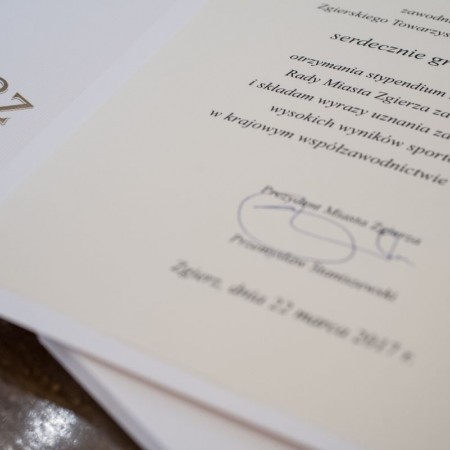 zawodn
Zgierskiego Towarzys
serdecznie gr
otrzymania stypendium
Rady Miasta Zgierza za
i składam wyrazy uznania za
wysokich wyników sporto
w krajowym współzawodnictwie
Prezydent Miasta Zgierza
Przemysław Staniszewski
Zgierz, dnia 22 marca 2017 r.